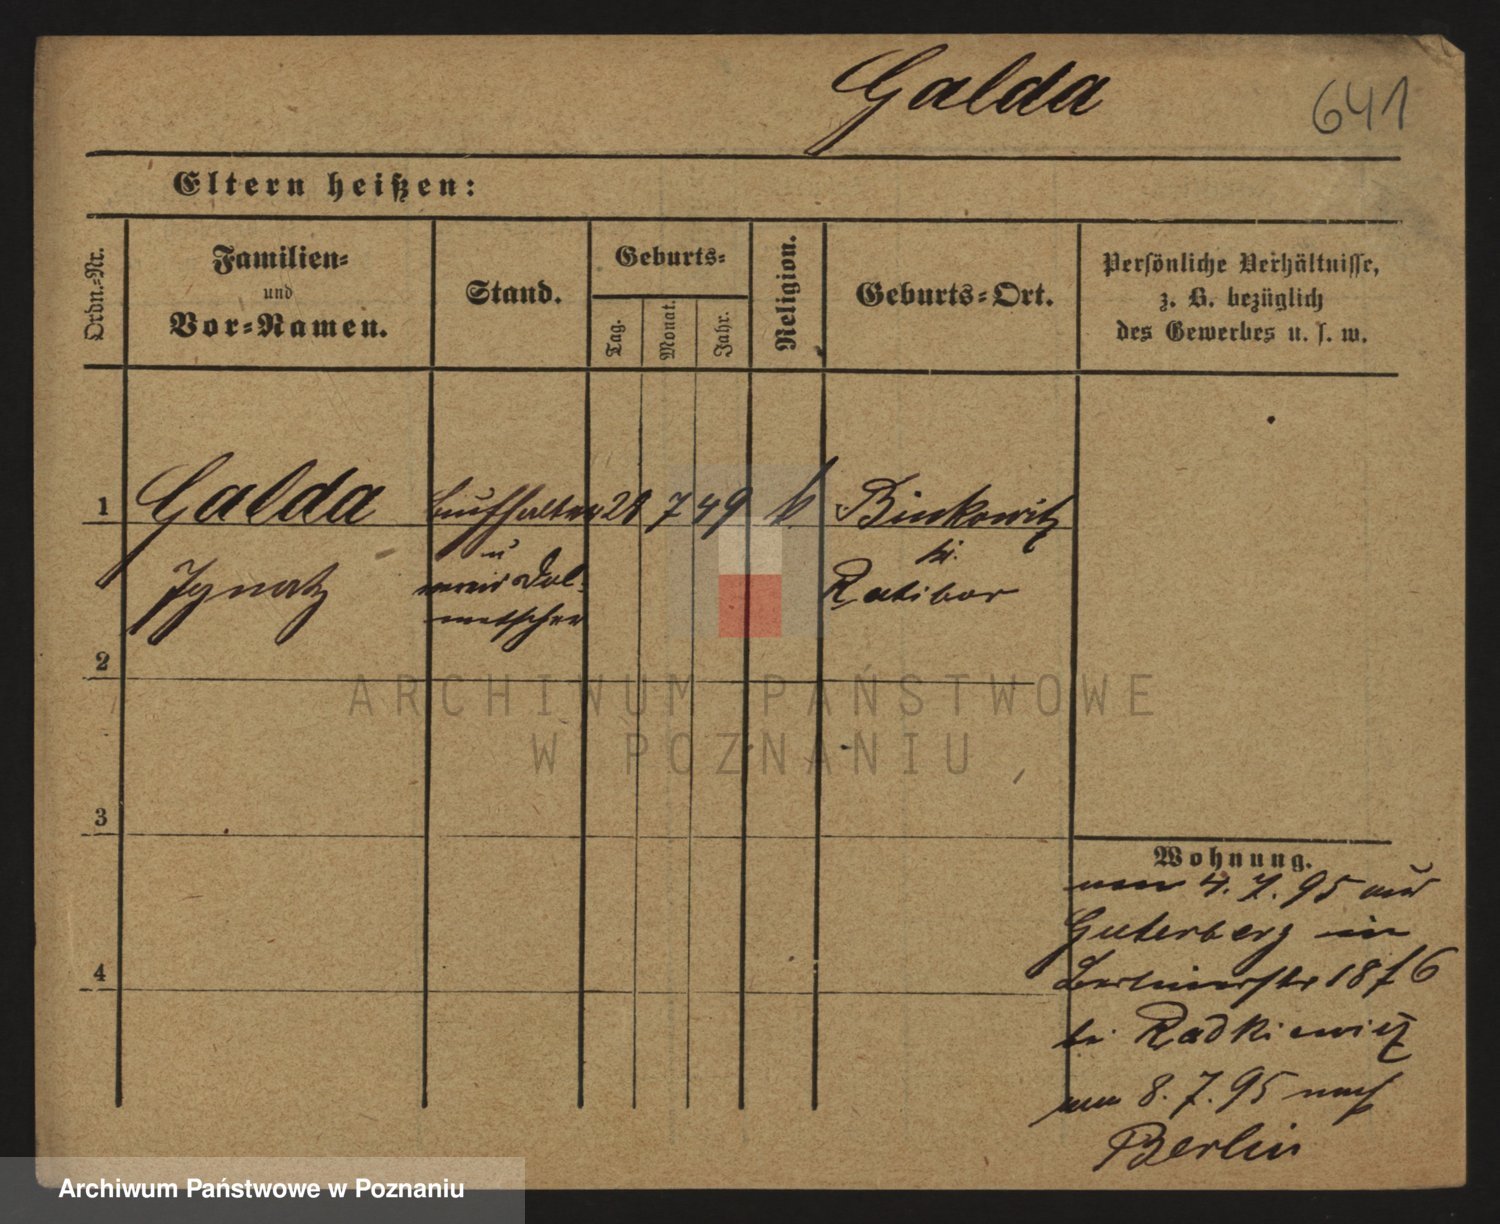 Galda
641
Eltern heißen:
Ordn.-Nr.
Familien-
und
Vor-Namen.
Stand.
Geburts-
Tag.
Monat.
Jahr.
Religion.
Geburts-Ort.
Persönliche Verhältnisse,
z. B. bezüglich
des Gewerbes u. s. w.
1
Galda
Ignatz
Buchhalter
u
Dol-
metscher
28
7
49
k
Binkowitz
bei
Ratibor
2
3
4
Wohnung.
4. 7. 95 aus
Guterberg in
Berlinerstr 18
bei Radkiewicz
am 8. 7. 95 nach
Berlin
ARCHIWUM PAŃSTWOWE
W POZNANIU
Archiwum Państwowe w Poznaniu